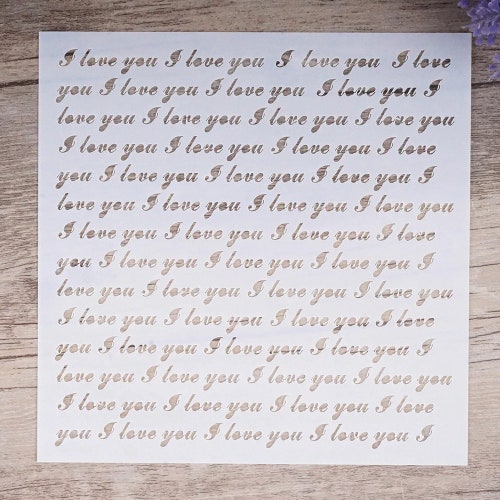 I love you I love you I love you I love
you I love you I love you I love you I
love you I love you I love you I love you
I love you I love you I love you I love
you I love you I love you I love you I
love you I love you I love you I love you
I love you I love you I love you I love
you I love you I love you I love you I
love you I love you I love you I love you
I love you I love you I love you I love
you I love you I love you I love you I
love you I love you I love you I love you
I love you I love you I love you I love
you I love you I love you I love you I